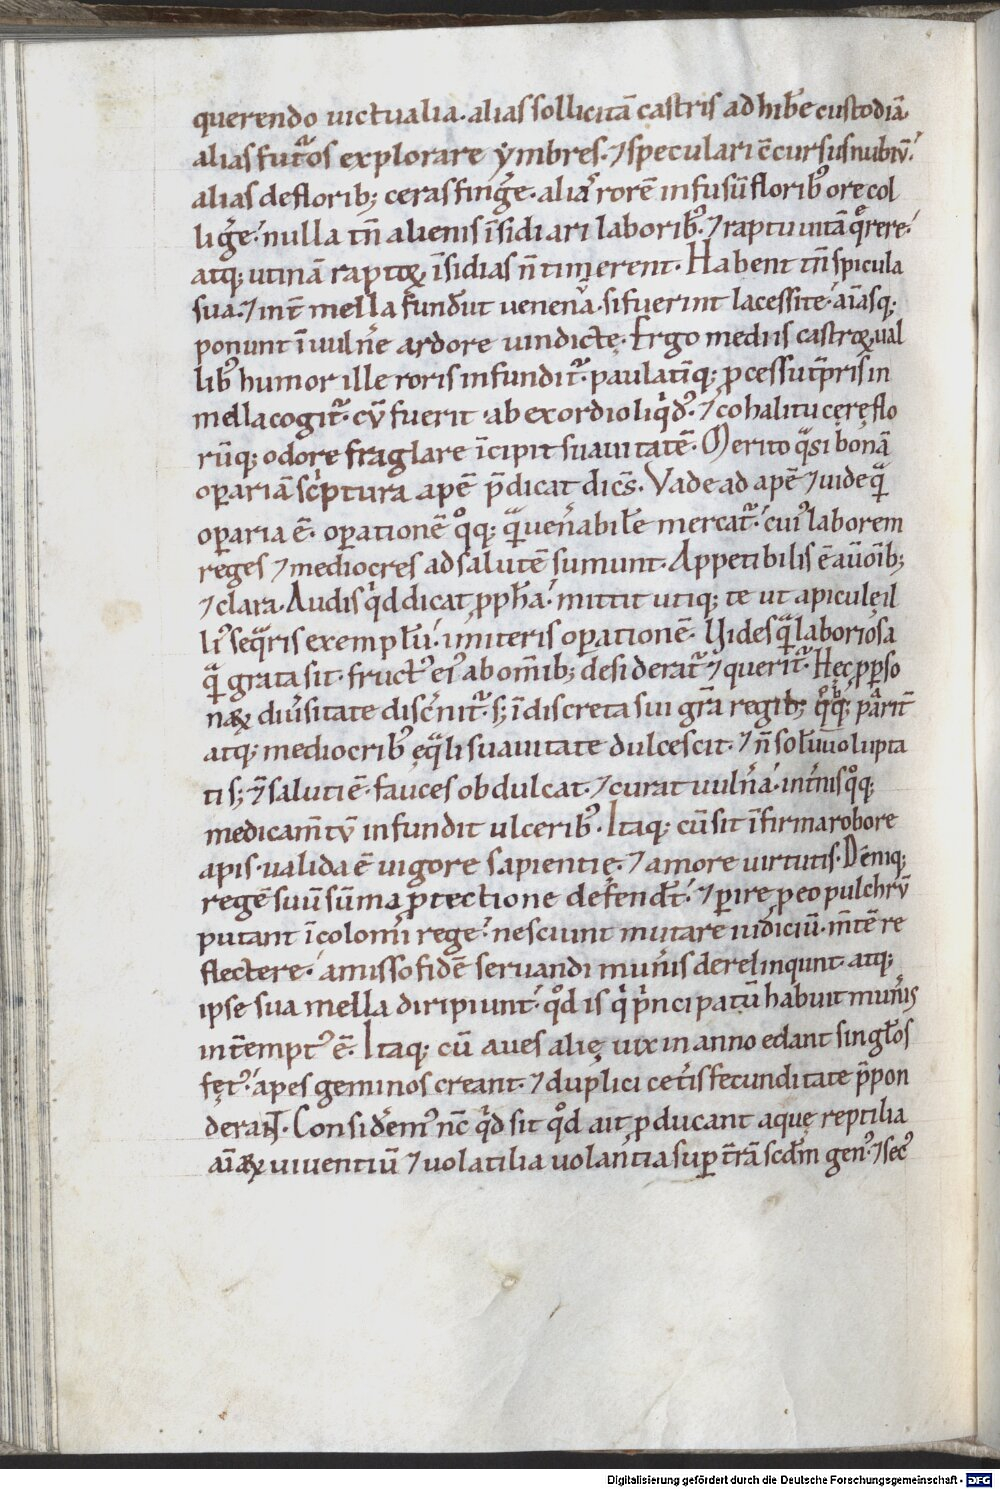 querendo uictualia. alias sollicitā castris adhib̄e custodiā.
alias futᷓos explorare ẏmbres. ⁊ speculari c̄cursus nubiū.
alias deflorib; ceras fing̅e. alias rorē infusū florib᷒ ore col
lig̅e. nulla tn̄ alienis īsidiari laborib᷒. ⁊ raptu uitā q̊rere.
atq; utinā raptoꝝ īsidias n̄ timerent. Habent tn̄ spicula
sua. ⁊ int̄ mella fund̄ut uenena. si fuerint lacessite. aīasq;
ponunt ī uuln̄e ardore uindictę. Ergo mediis castroꝝ ual
lib᷒ humor ille roris infundit᷑. paulatīq; ꝓcessu tp̄ris in
mella cogit᷑. cū fuerit ab exordio liqͥd᷒. ⁊ cohalitu cerę flo
rūq; odore fraglare īcipit suauitatē. Merito qᷓsi bonā
oꝑariā scͥptura apē p̄dicat dicēs. Vade ad apē ⁊ uide qᷓ
oꝑaria ē. oꝑationē q̊q; qᷓ uen̄abilē mercat᷑. cui᷒ laborem
reges ⁊ mediocres ad salutē sumunt. Appetibilis ē aū oīb;
⁊ clara. Audis qͥd dicat ꝓph̄a. mittit utiq; te ut apiculę il
li᷒ seqᷓris exemplū. imiteris oꝑationē. Uides qᷓ laboriosa
qᷓ grata sit. fruct᷒ ei᷒ ab om̄ib; desiderat᷑ ⁊ querit᷑. Hec ꝓ ꝑso
naꝝ diūsitate disc̄nit᷑. s; īdiscreta sui gr̄a regib; q̊q; parit̄
atq; mediocrib᷒ ęqᷓli suauitate dulcescit. ⁊ n̄ solū uolupta
ti s; ⁊ saluti ē. fauces obdulcat. ⁊ curat uuln̄a. int̄nis q̊q;
medicam̄tū infundit ulcerib᷒. Itaq; cū sit īfirma robore
apis. ualida ē uigore sapientię. ⁊ amore uirtutis. Deniq;
regē suū sūma ꝓtectione defend̄t. ⁊ ꝑire ꝓ eo pulchrū
putant īcolom̄i rege. nesciunt mutare iudiciū. m̄tē re
flectere. amisso fidē seruandi mun̄is derelinqunt. atq;
ipse sua mella diripiunt. qd̊ is qͥ pͥncipatū habuit mun̄is
int̄empt᷒ ē. Itaq; cū aues alię uix in anno edant singłos
fęt᷒. apes geminos creant. ⁊ duplici cet̄is fecunditate p̄pon
derant. Consid̄em᷒ nc̄ qͥd sit qd̊ ait ꝓducant aquę reptilia
aīaꝝ uiuentiū ⁊ uolatilia uolantia suꝑ t̄rā scd̄m gen᷒. ⁊ sec̄
Digitalisierung gefördert durch die Deutsche Forschungsgemeinschaft - DFG